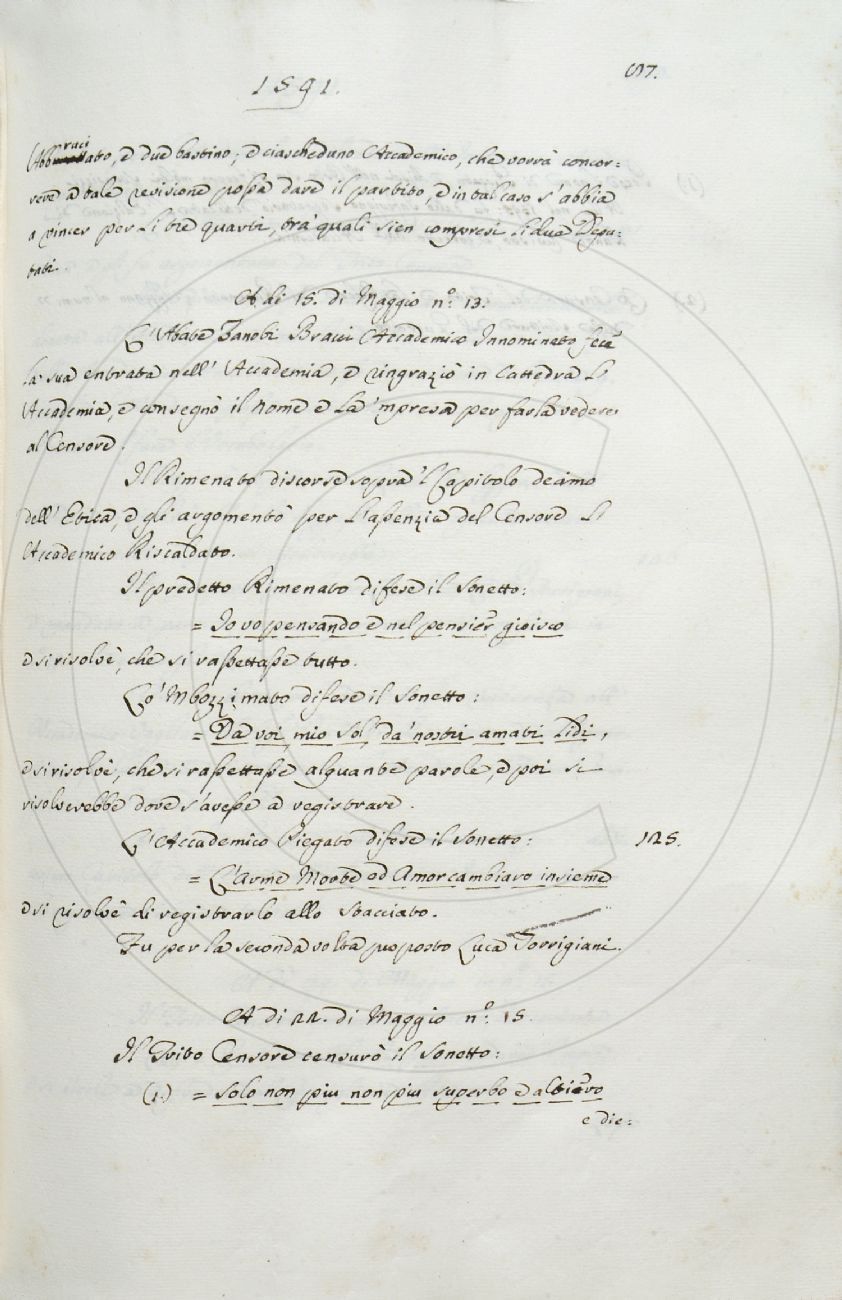 1591.
87.
Abbraciato, e due bastino; e ciascheduno Accademico, che vorrà concor:
rere a tale revisione possa dare il partito, e in tal caso s'abbia
a vincer per li tre quarti, tra' quali sien compresi li dua Depu:
tati.
A di 15. di Maggio n.º: 13.
L'Abate Zanobi Bracci Accademico Innominato fece
la sua entrata nell' Accademia, e ringraziò in Cattedra L'
Accademia, e consegnò il nome e la 'mpresa per farla vedere
al Censore.
Il Rimenato discorse sopra 'l Capitolo decimo
dell' Etica, e gli argomentò per l'assenzia del Censore L'
Accademico Riscaldato.
Il predetto Rimenato difese il Sonetto:
= Io vo pensando e nel pensier gioisco
e si risolvè, che si rassettasse tutto.
Lo 'Mbozzimato difese il Sonetto:
= Da voi, mio Sol, da' nostri amati lidi,
e si risolvè, che si rassettasse alquante parole, e poi si
risolverebbe dove s'avesse a registrare.
L'Accademico Piegato difese il Sonetto:
125.
= L'Arme Morte ed Amor cambiaro insieme
e si risolvè di registrarlo allo stacciato.
Fu per la seconda volta proposto Luca Torrigiani.
A di 22. di Maggio n.º: 15.
Il Trito Censore censurò il Sonetto:
(1.) = Solo non più non più superbo e altiero
e die: